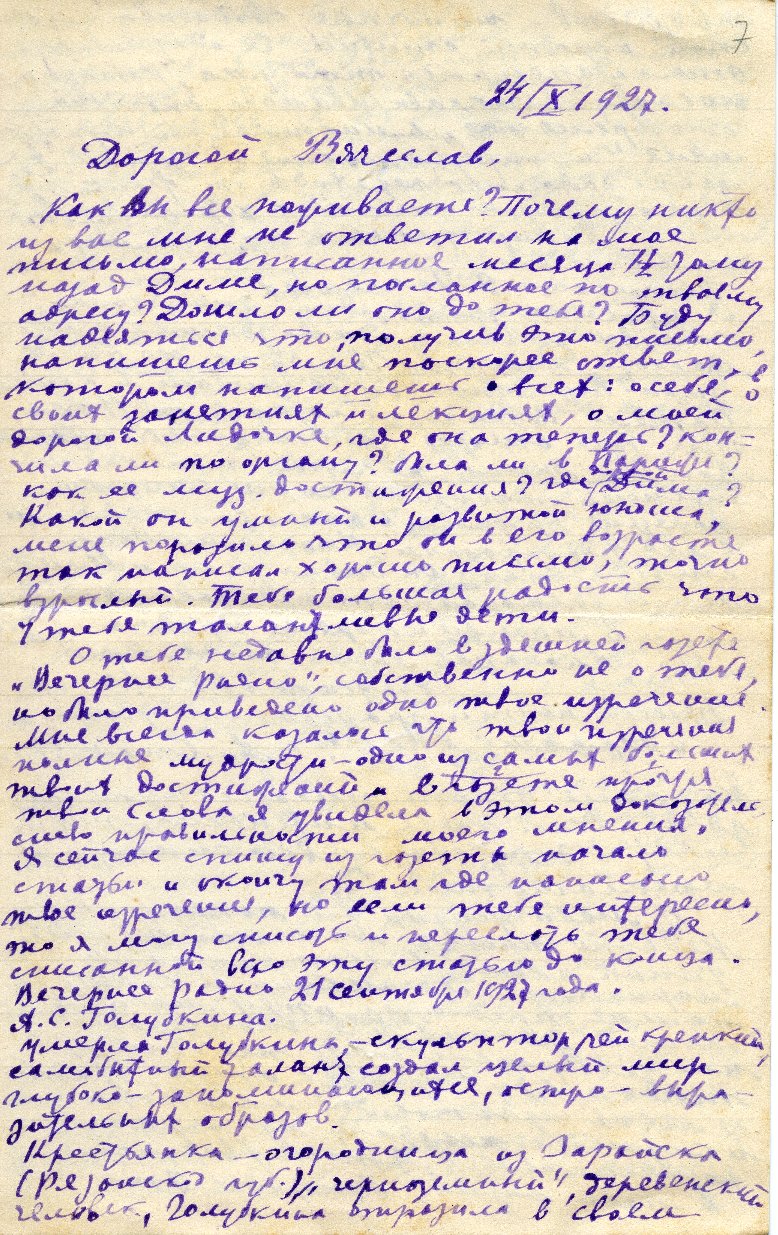 7
24/X 1927.
Дорогой Вячеслав,
Как Вы все поживаете? Почему никто
из вас мне не ответил на мое
письмо, написанное месяца тому
назад Диме, но посланное по твоему
адресу? Дошло ли оно до тебя? Буду
надеяться что, получив это письмо,
напишешь мне поскорее ответ, в
котором напишешь о всех: о себе, о
своих занятиях и лекциях, о моей
дорогой Лидочке, где она теперь? Кон-
чила ли по органу? Была ли в Париже?
как ее муз. достижения? где Дима?
Какой он умный и развитой юноша,
меня поразило что он в его возрасте
так написал хорошо письмо, точно
взрослый. Тебе большая радость что
у тебя талантливые дети.
О тебе недавно было в здешней газете
„Вечернее радио“, собственно не о тебе,
но было приведено одно твое изречение.
Мне всегда казалось что твои изречения
полные мудрости – одно из самых больших
твоих достижений и в газете прочтя
твои слова я увидела в этом доказатель
ство правильности моего мнения.
Я сейчас спишу из газеты начало
статьи и окончу там где написано
твое изречение, но если тебе интересно,
то я могу списать и переслать тебе
списанной всю эту статью до конца.
Вечернее радио 21 сентября 1927 года.
А. С. Голубкина.
Умерла Голубкина, – скульптор чей крепкий,
самобытный талант создал целый мир
глубоко – запоминающихся, остро – выра-
зительных образов.
Крестьянка – огородница из Зарайска
(Рязанской губ.), „черноземный“, деревенский
человек, Голубкина отразила в своем